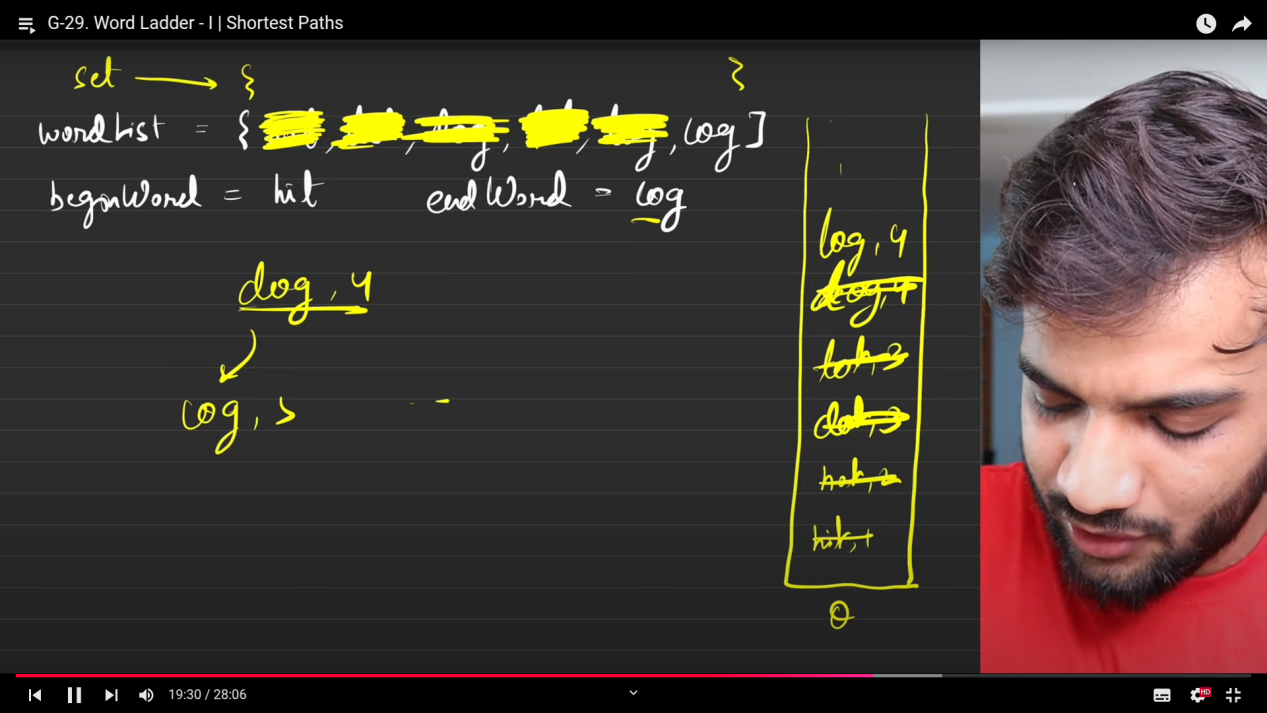 G-29. Word Ladder - I | Shortest Paths
set → { }
wordList = { , , , , , cog ]
beginWord = hit endWord = cog
dog, 4
cog, 5
log, 4
dog, 4
lot, 3
dot, 3
hot, 2
hit, 1
Q
19:30 / 28:06
HD